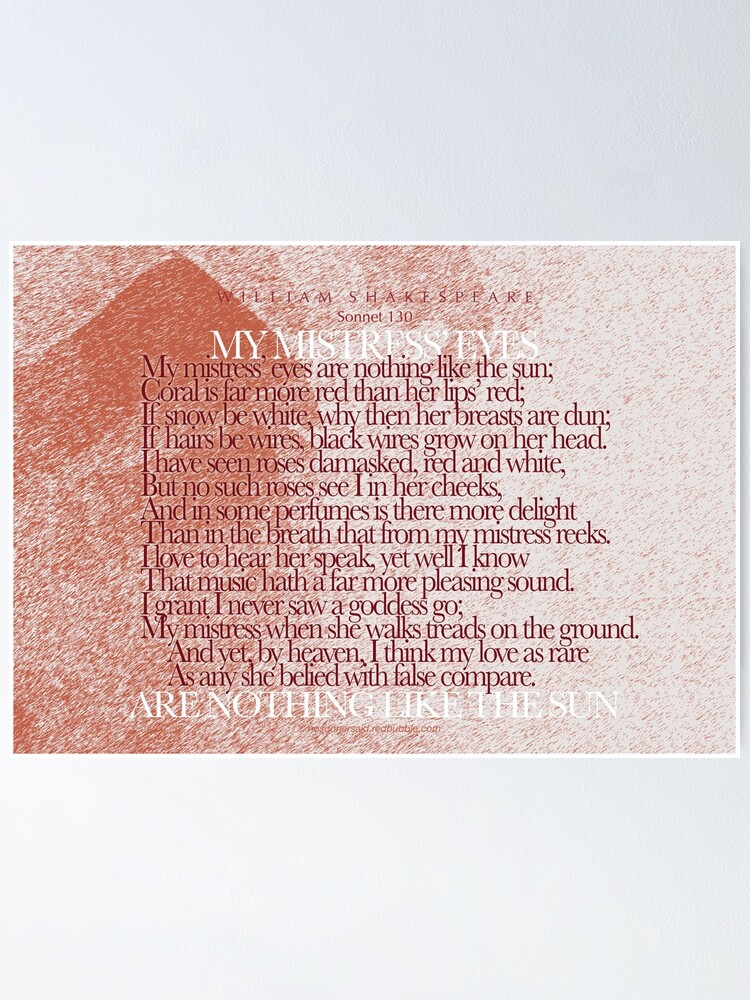 WILLIAM SHAKESPEARE
Sonnet 130
MY MISTRESS' EYES
My mistress' eyes are nothing like the sun;
Coral is far more red than her lips' red;
If snow be white, why then her breasts are dun;
If hairs be wires, black wires grow on her head.
I have seen roses damasked, red and white,
But no such roses see I in her cheeks,
And in some perfumes is there more delight
Than in the breath that from my mistress reeks.
I love to hear her speak, yet well I know
That music hath a far more pleasing sound.
I grant I never saw a goddess go;
My mistress when she walks treads on the ground.
And yet, by heaven, I think my love as rare
As any she belied with false compare.
ARE NOTHING LIKE THE SUN
nosoonersaid.redbubble.com